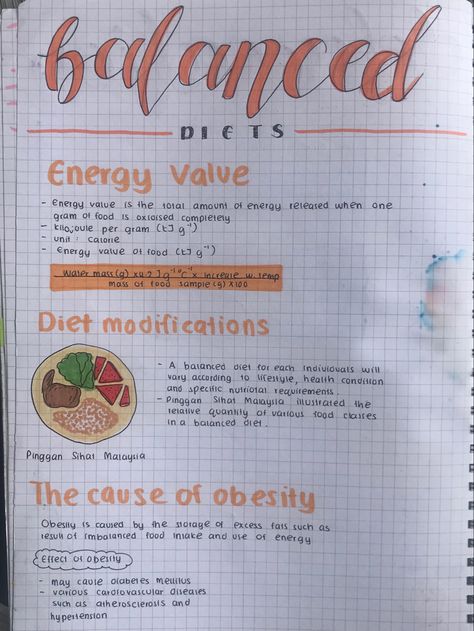 balanced
DIETS
Energy Value
- Energy value is the total amount of energy released when one
gram of food is oxidised completely
- kilojoule per gram (kJ g⁻¹)
- unit : calorie
- Energy value of food (kJ g⁻¹)
Water mass (g) x 4.2 J g⁻¹ °C⁻¹ x increase w. temp
mass of food sample (g) x 1000
Diet modifications
- A balanced diet for each individuals will
vary according to lifestyle, health condition
and specific nutriotal requirements.
- Pinggan Sihat Malaysia illustrated the
relative quantity of various food classes
in a balanced diet.
Pinggan Sihat Malaysia
The cause of obesity
Obesity is caused by the storage of excess fats such as
result of imbalanced food intake and use of energy
Effect of obesity
- may cause diabetes mellitus
- various cardiovascular diseases
such as atherosclerosis and
hypertension